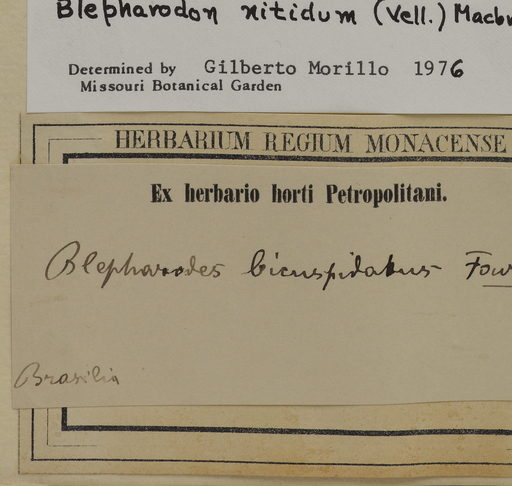 Blepharodon nitidum (Vell.) Macbr
Determined by Gilberto Morillo 1976
Missouri Botanical Garden
HERBARIUM REGIUM MONACENSE
Ex herbario horti Petropolitani.
Blepharodes bicuspidatus Four
Brasilia